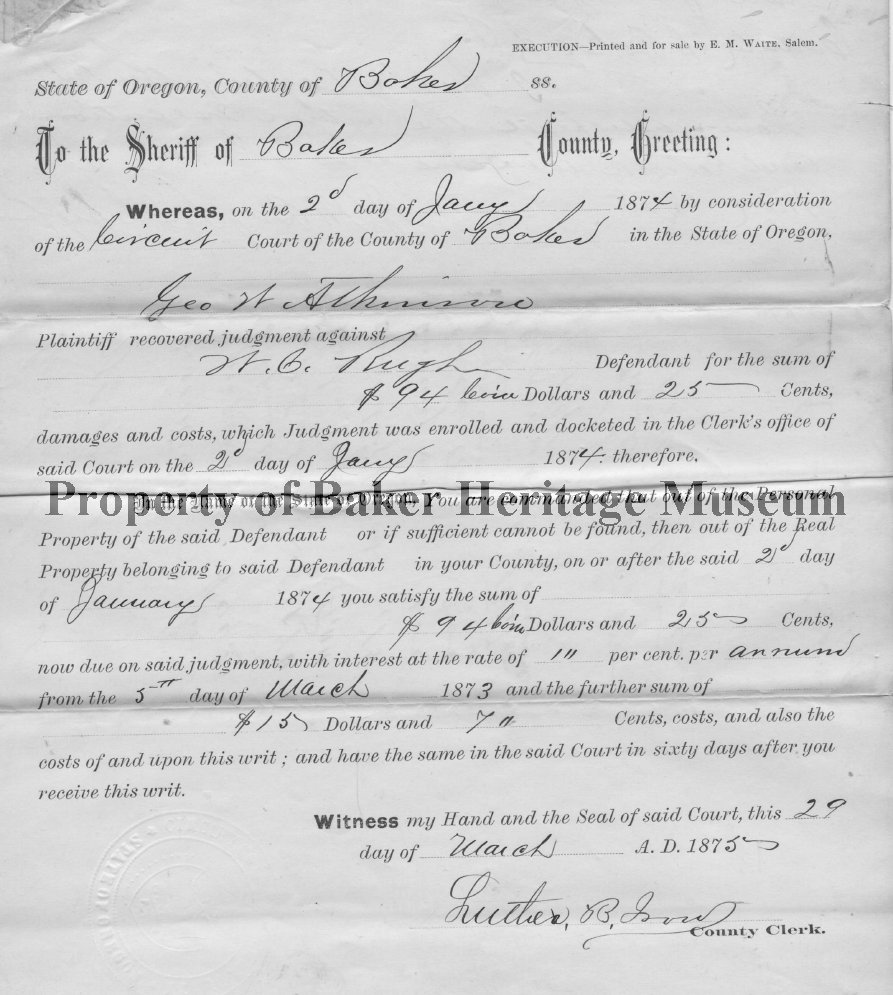 EXECUTION—Printed and for sale by E. M. WAITE, Salem.
State of Oregon, County of Baker ss.
To the Sheriff of Baker County, Greeting:
Whereas, on the 2d day of Jany 1874 by consideration
of the Circuit Court of the County of Baker in the State of Oregon,
Geo W Atkinson
Plaintiff recovered judgment against
W. C. Rugh Defendant for the sum of
$ 94 Coin Dollars and 25 Cents,
damages and costs, which Judgment was enrolled and docketed in the Clerk's office of
said Court on the 2d day of Jany 1874. therefore,
In the Name of the State of Oregon, You are commanded that out of the Personal
Property of Baker Heritage Museum
Property of the said Defendant or if sufficient cannot be found, then out of the Real
Property belonging to said Defendant in your County, on or after the said 2d day
of January 1874 you satisfy the sum of
$ 94 Coin Dollars and 25 Cents,
now due on said judgment, with interest at the rate of 1" per cent. per annum
from the 5th day of March 1873 and the further sum of
$15 Dollars and 7" Cents, costs, and also the
costs of and upon this writ; and have the same in the said Court in sixty days after you
receive this writ.
Witness my Hand and the Seal of said Court, this 29
day of March A. D. 1875
Luther, B, Ison
County Clerk.